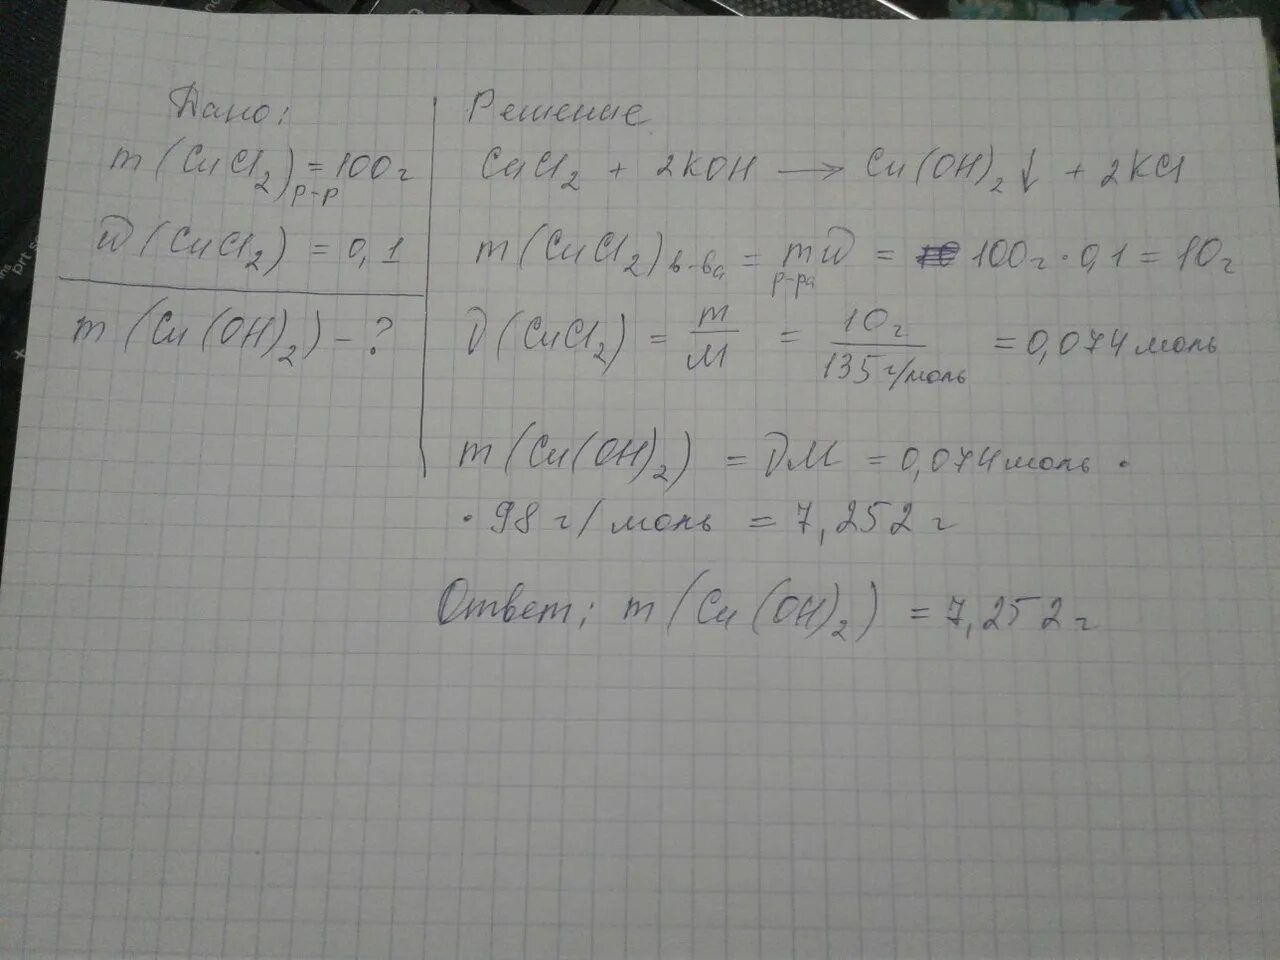 Дано:
m(CuCl2)р-р = 100г
W(CuCl2) = 0,1
m(Cu(OH)2) - ?
Решение
CuCl2 + 2KOH → Cu(OH)2↓ + 2KCl
m(CuCl2)в-ва = mр-ра W = 100г · 0,1 = 10г
D(CuCl2) = m/M = 10г/135г/моль = 0,074моль
m(Cu(OH)2) = DM = 0,074моль ·
· 98г/моль = 7,252г
Ответ; m(Cu(OH)2) = 7,252г